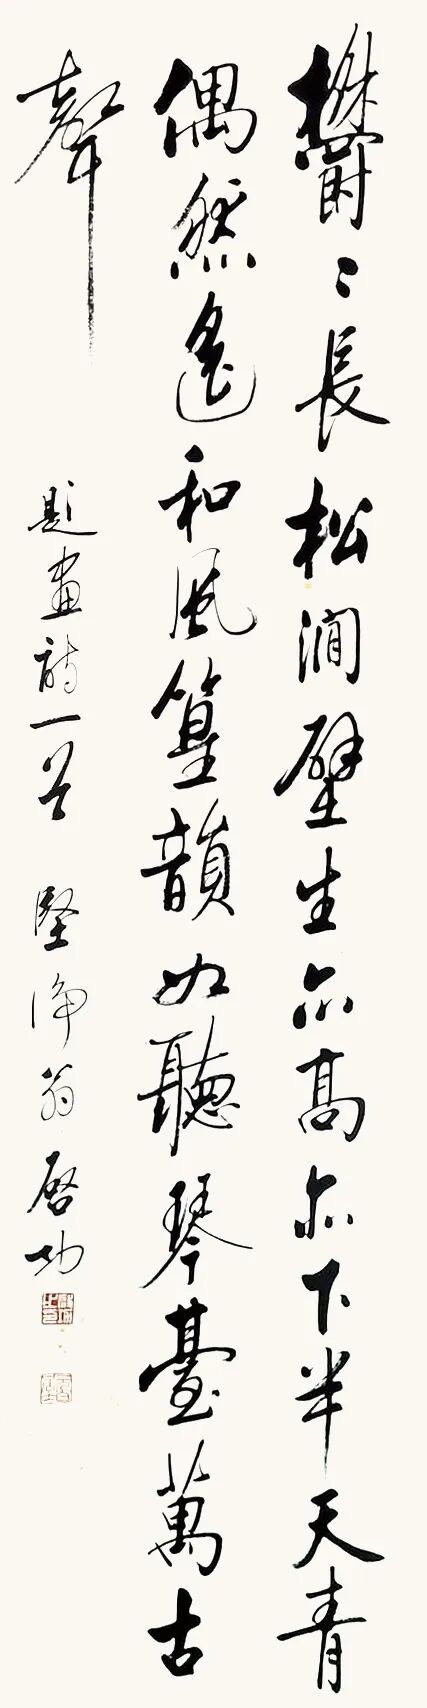 欝〻長松澗壁生亦高亦下半天青
偶然遙和風篁韻如聽琴臺萬古
聲
題畫詩一首 堅淨翁啓功